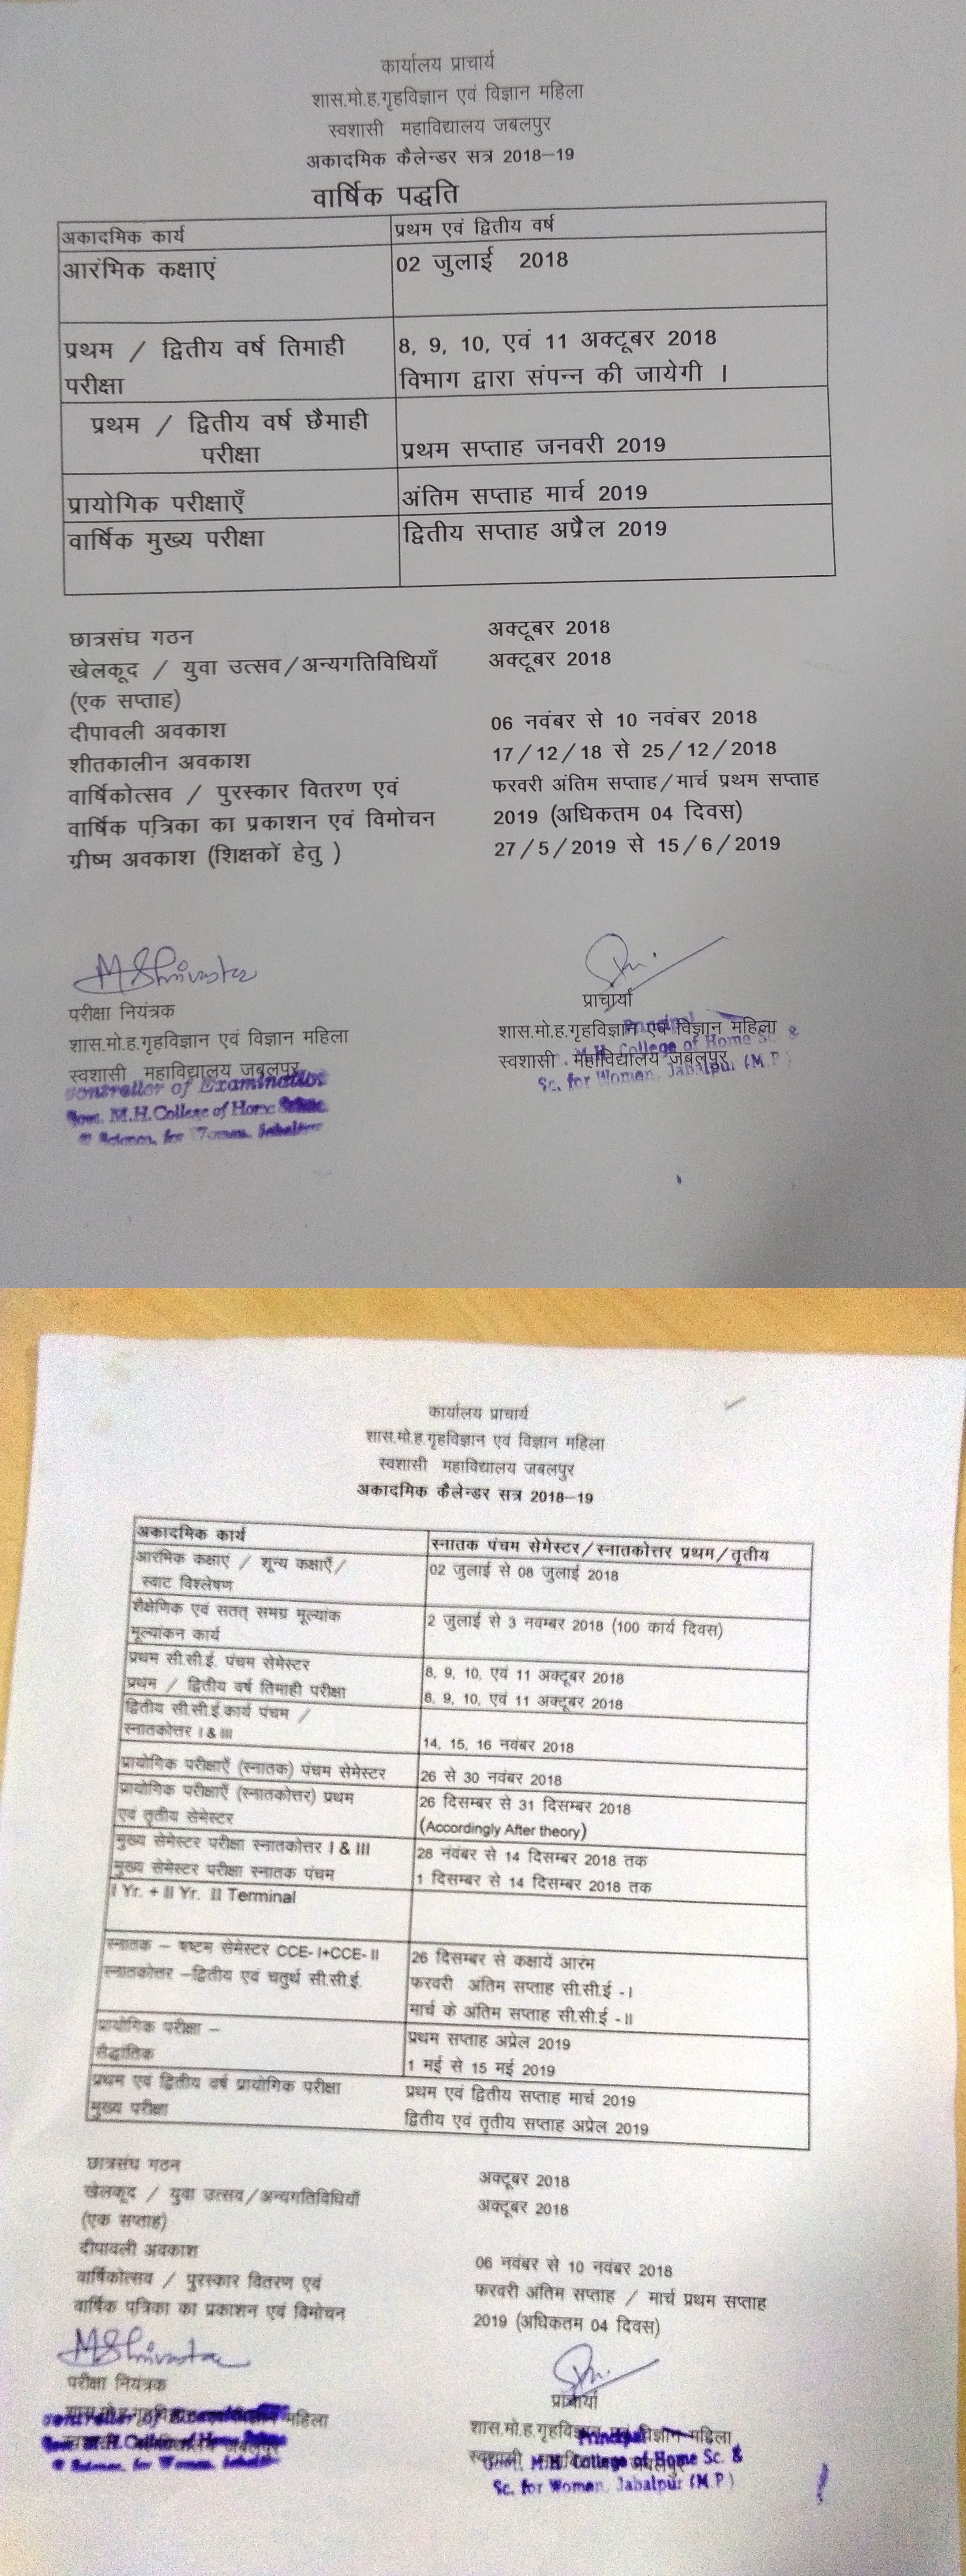 कार्यालय प्राचार्य
शास.मो.ह.गृहविज्ञान एवं विज्ञान महिला
स्वशासी महाविद्यालय जबलपुर
अकादमिक कैलेन्डर सत्र 2018–19
वार्षिक पद्धति
अकादमिक कार्य प्रथम एवं द्वितीय वर्ष
आरंभिक कक्षाएं 02 जुलाई 2018
प्रथम / द्वितीय वर्ष तिमाही 8, 9, 10, एवं 11 अक्टूबर 2018
परीक्षा विभाग द्वारा संपन्न की जायेगी ।
प्रथम / द्वितीय वर्ष छैमाही
परीक्षा प्रथम सप्ताह जनवरी 2019
प्रायोगिक परीक्षाएँ अंतिम सप्ताह मार्च 2019
वार्षिक मुख्य परीक्षा द्वितीय सप्ताह अप्रैल 2019
छात्रसंघ गठन अक्टूबर 2018
खेलकूद / युवा उत्सव/अन्यगतिविधियाँ अक्टूबर 2018
(एक सप्ताह)
दीपावली अवकाश 06 नवंबर से 10 नवंबर 2018
शीतकालीन अवकाश 17/12/18 से 25/12/2018
वार्षिकोत्सव / पुरस्कार वितरण एवं फरवरी अंतिम सप्ताह/मार्च प्रथम सप्ताह
वार्षिक पत्रिका का प्रकाशन एवं विमोचन 2019 (अधिकतम 04 दिवस)
ग्रीष्म अवकाश (शिक्षकों हेतु ) 27/5/2019 से 15/6/2019
MShrivastava
परीक्षा नियंत्रक प्राचार्या
शास.मो.ह.गृहविज्ञान एवं विज्ञान महिला शास.मो.ह.गृहविज्ञान एवं विज्ञान महिला
स्वशासी महाविद्यालय जबलपुर स्वशासी महाविद्यालय जबलपुर
Controller of Examination Principal
Govt. M.H.College of Home M.H. College of Home Sc. &
& Science, for Women, Jabalpur Sc. for Women, Jabalpur (M.P.)
कार्यालय प्राचार्य
शास.मो.ह.गृहविज्ञान एवं विज्ञान महिला
स्वशासी महाविद्यालय जबलपुर
अकादमिक कैलेन्डर सत्र 2018–19
अकादमिक कार्य स्नातक पंचम सेमेस्टर/स्नातकोत्तर प्रथम/तृतीय
आरंभिक कक्षाएं / शून्य कक्षाएँ/ 02 जुलाई से 08 जुलाई 2018
स्वाट विश्लेषण
शैक्षेणिक एवं सतत् समग्र मूल्यांक 2 जुलाई से 3 नवम्बर 2018 (100 कार्य दिवस)
मूल्यांकन कार्य
प्रथम सी.सी.ई. पंचम सेमेस्टर 8, 9, 10, एवं 11 अक्टूबर 2018
प्रथम / द्वितीय वर्ष तिमाही परीक्षा 8, 9, 10, एवं 11 अक्टूबर 2018
द्वितीय सी.सी.ई.कार्य पंचम /
स्नातकोत्तर I & III 14, 15, 16 नवंबर 2018
प्रायोगिक परीक्षाएँ (स्नातक) पंचम सेमेस्टर 26 से 30 नवंबर 2018
प्रायोगिक परीक्षाएँ (स्नातकोत्तर) प्रथम 26 दिसम्बर से 31 दिसम्बर 2018
एवं तृतीय सेमेस्टर (Accordingly After theory)
मुख्य सेमेस्टर परीक्षा स्नातकोत्तर I & III 28 नंवंबर से 14 दिसम्बर 2018 तक
मुख्य सेमेस्टर परीक्षा स्नातक पंचम 1 दिसम्बर से 14 दिसम्बर 2018 तक
I Yr. + II Yr. II Terminal
स्नातक – षष्टम सेमेस्टर CCE- I+CCE- II 26 दिसम्बर से कक्षायें आरंभ
स्नातकोत्तर –द्वितीय एवं चतुर्थ सी.सी.ई. फरवरी अंतिम सप्ताह सी.सी.ई -I
मार्च के अंतिम सप्ताह सी.सी.ई -II
प्रायोगिक परीक्षा – प्रथम सप्ताह अप्रेल 2019
सैद्धांतिक 1 मई से 15 मई 2019
प्रथम एवं द्वितीय वर्ष प्रायोगिक परीक्षा प्रथम एवं द्वितीय सप्ताह मार्च 2019
मुख्य परीक्षा द्वितीय एवं तृतीय सप्ताह अप्रेल 2019
छात्रसंघ गठन अक्टूबर 2018
खेलकूद / युवा उत्सव/अन्यगतिविधियाँ अक्टूबर 2018
(एक सप्ताह)
दीपावली अवकाश 06 नवंबर से 10 नवंबर 2018
वार्षिकोत्सव / पुरस्कार वितरण एवं फरवरी अंतिम सप्ताह / मार्च प्रथम सप्ताह
वार्षिक पत्रिका का प्रकाशन एवं विमोचन 2019 (अधिकतम 04 दिवस)
MShrivastava
परीक्षा नियंत्रक प्राचार्या
महिला शास.मो.ह.गृहविज्ञान एवं विज्ञान महिला
Principal
M.H.College of Home M.H. College of Home Sc. &
& Science, for Women, Sc. for Women, Jabalpur (M.P.)